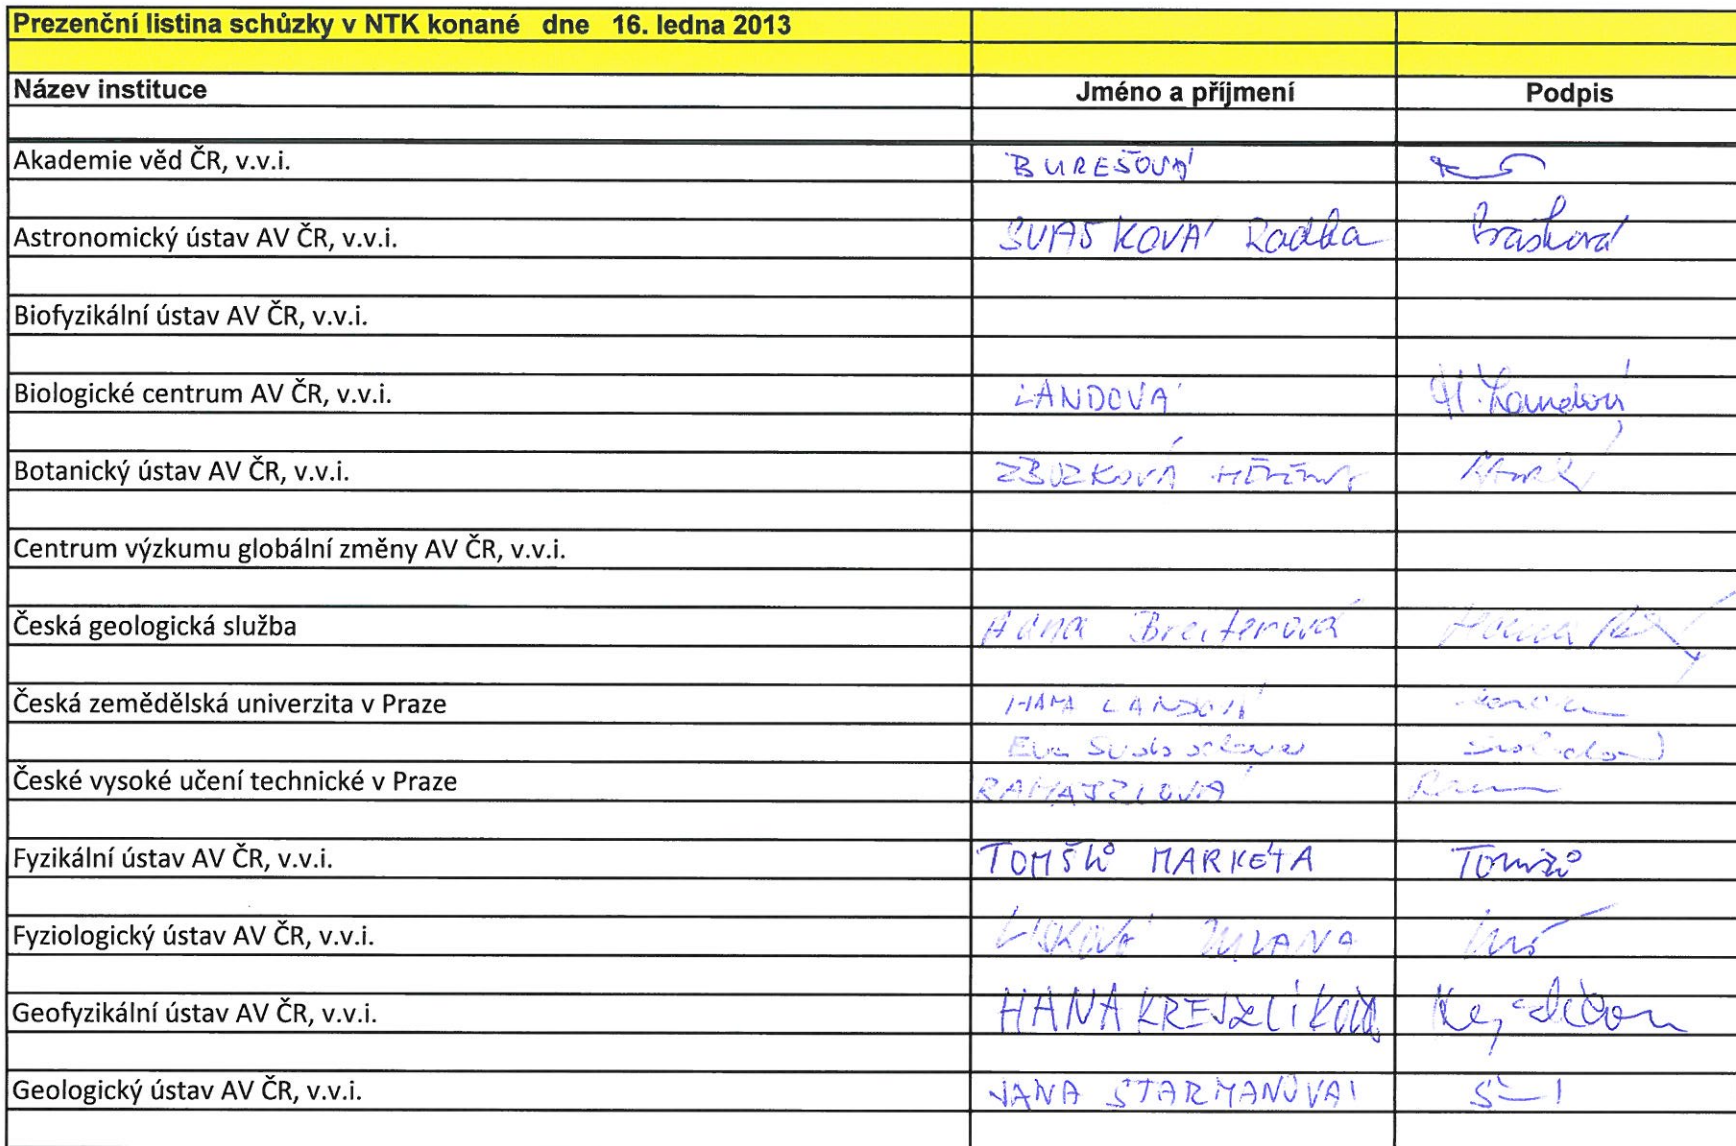 Prezenční listina schůzky v NTK konané dne 16. ledna 2013
Název instituce Jméno a příjmení Podpis
Akademie věd ČR, v.v.i. BUREŠOVÁ
Astronomický ústav AV ČR, v.v.i. SVAŠKOVÁ Radka Svašková
Biofyzikální ústav AV ČR, v.v.i.
Biologické centrum AV ČR, v.v.i. LANDOVÁ
Botanický ústav AV ČR, v.v.i. ZBUZKOVÁ
Centrum výzkumu globální změny AV ČR, v.v.i.
Česká geologická služba Hana Breiterová
Česká zemědělská univerzita v Praze HANA LANDOVÁ
Eva
České vysoké učení technické v Praze RAMAJZLOVÁ
Fyzikální ústav AV ČR, v.v.i. TOMŠŮ MARKÉTA Tomšů
Fyziologický ústav AV ČR, v.v.i.
Geofyzikální ústav AV ČR, v.v.i. HANA KREJZLÍKOVÁ
Geologický ústav AV ČR, v.v.i. JANA ŠTARMANOVÁ